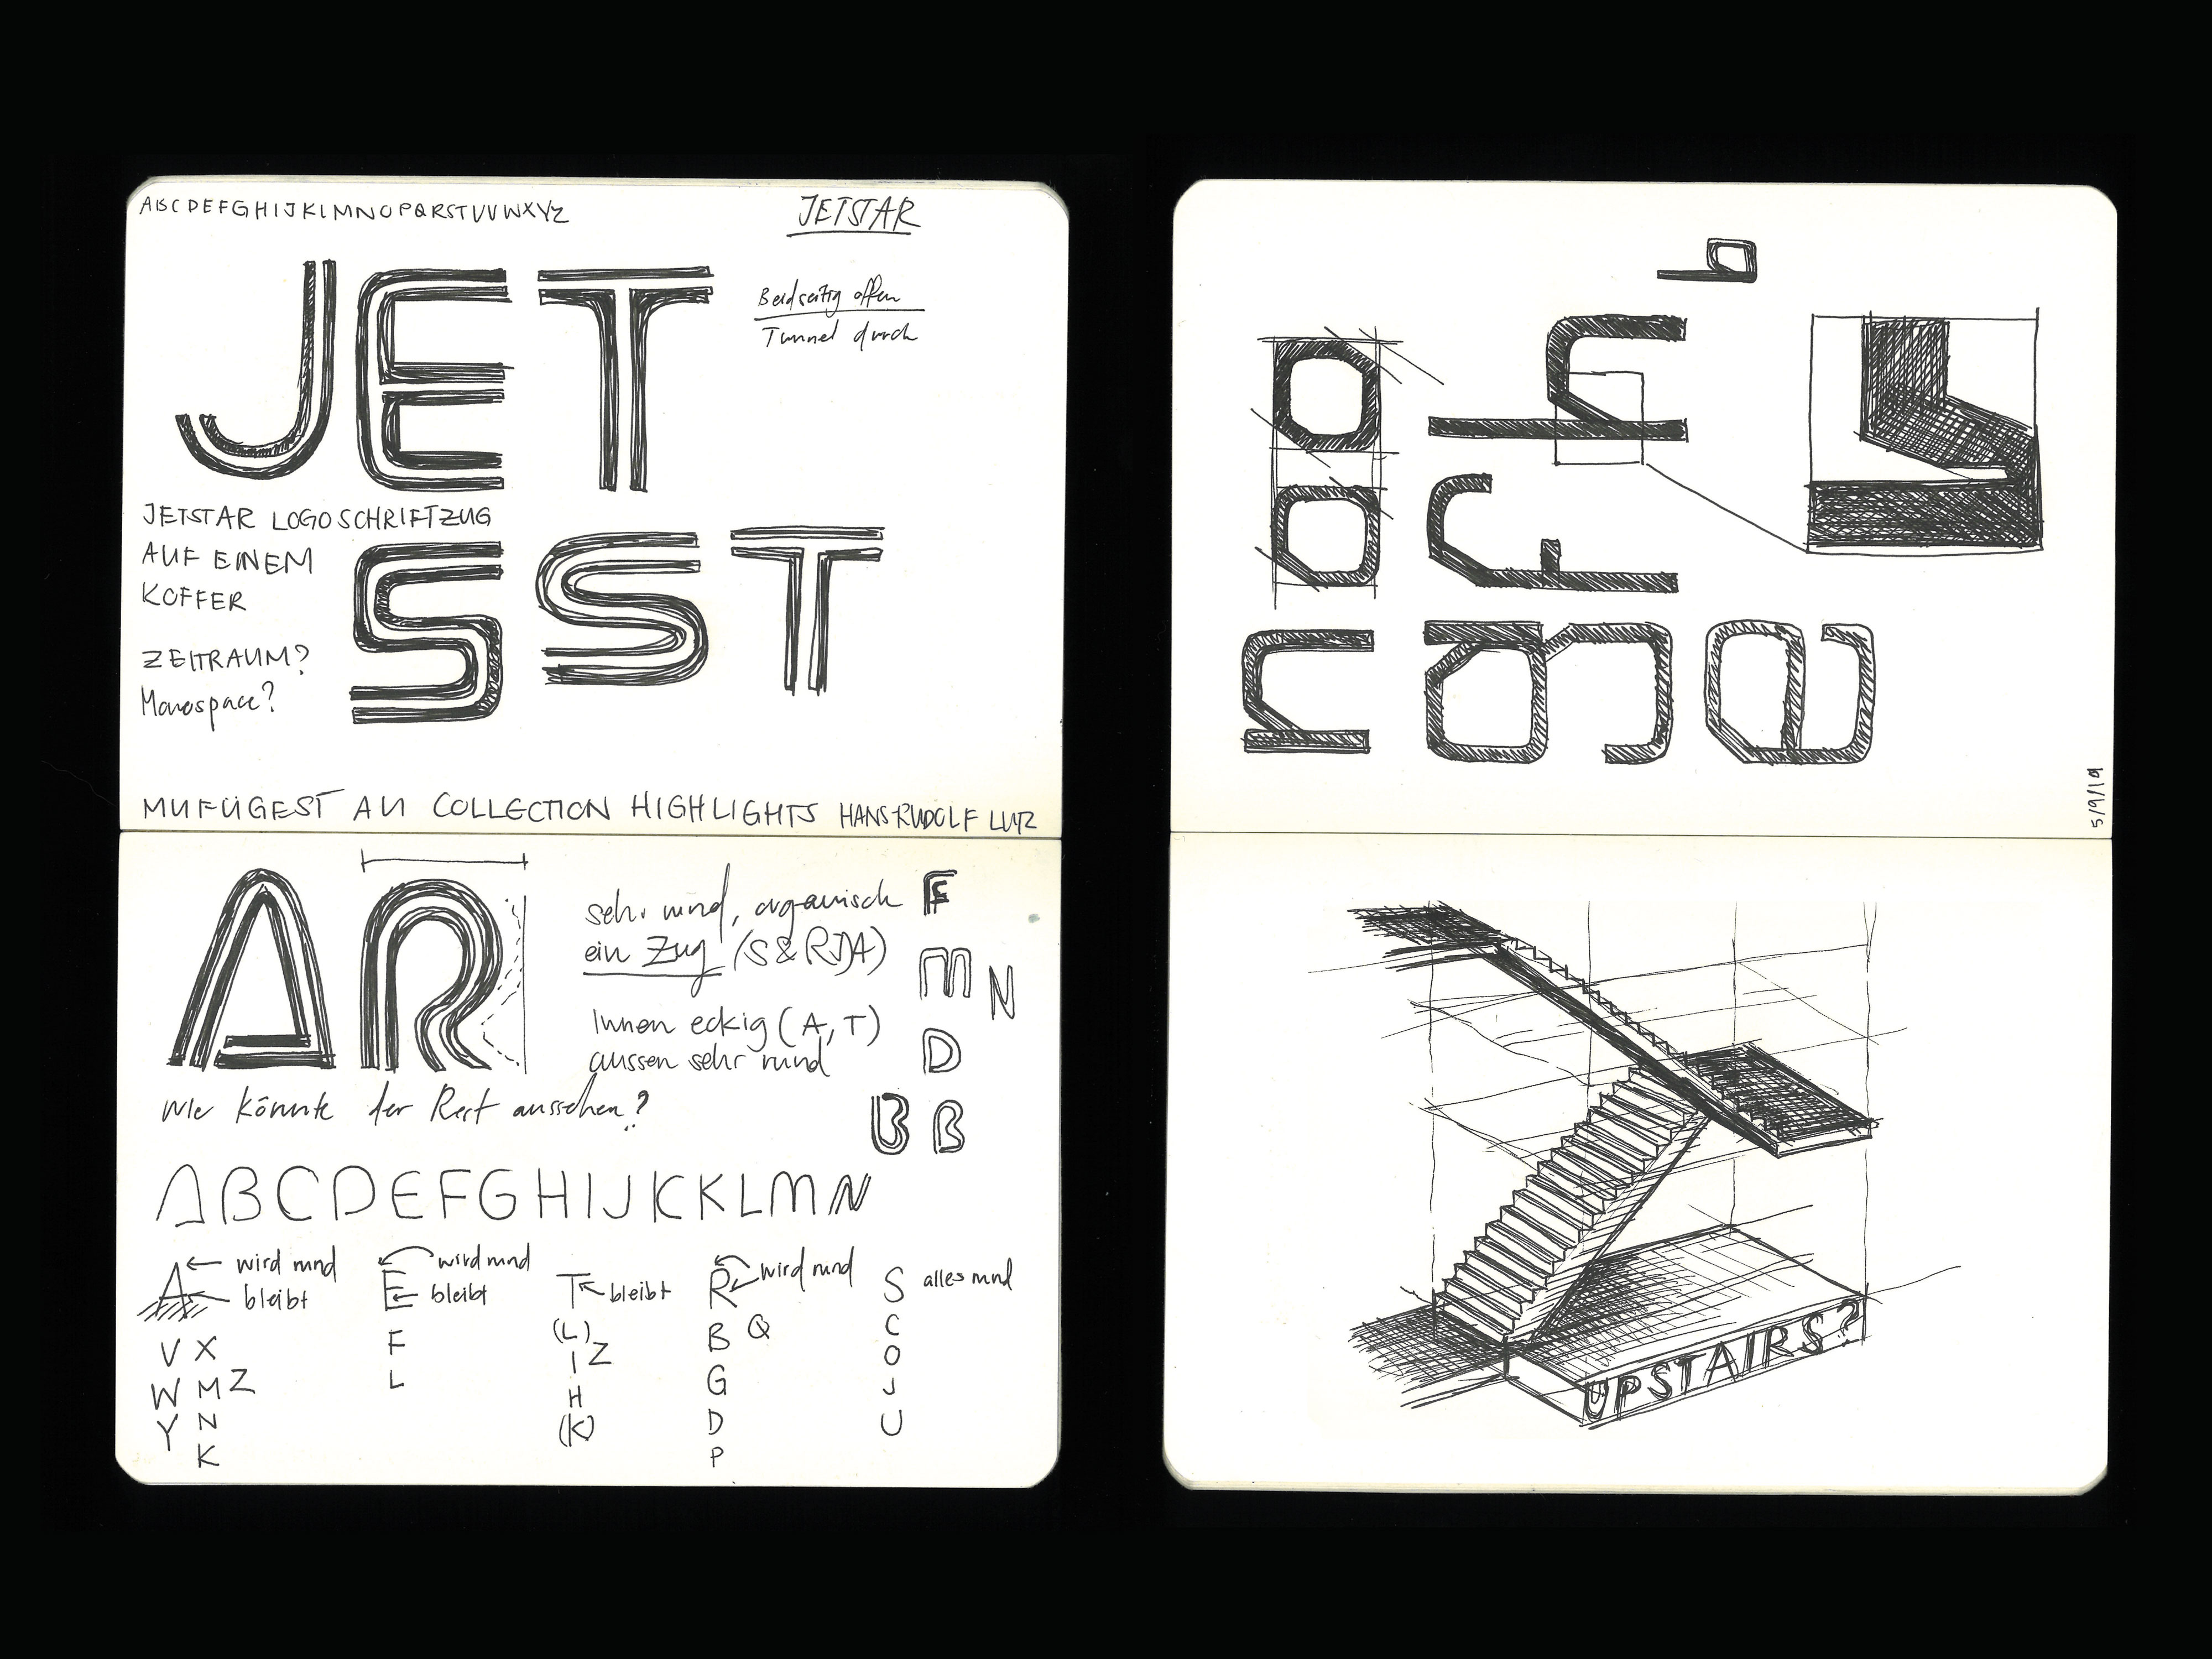 ABCDEFGHIJKLMNOPQRSTUVWXYZ
JETSTAR
JET
Beidseitig offen
Tunnel durch
JETSTAR LOGOSCHRIFTZUG
AUF EINEM
KOFFER
SST
ZEITRAUM?
Monospace?
COLLECTION HIGHLIGHTS HANS-RUDOLF LUTZ
AR
sehr rund, organisch
ein Zug (S & R)
Innen eckig (A, T)
aussen sehr rund
F
M N
D
B B
Wie könnte der Rest aussehen?
ABCDEFGHIJKKLMN
A wird rund
bleibt
V X
W M Z
Y N
K
E wird rund
bleibt
F
L
T bleibt
(L)
I Z
H
(K)
R wird rund
B Q
G
D
P
S alles rund
C
O
J
U
noo
afh
g
e
b
5/9/19
UPSTAIRS?